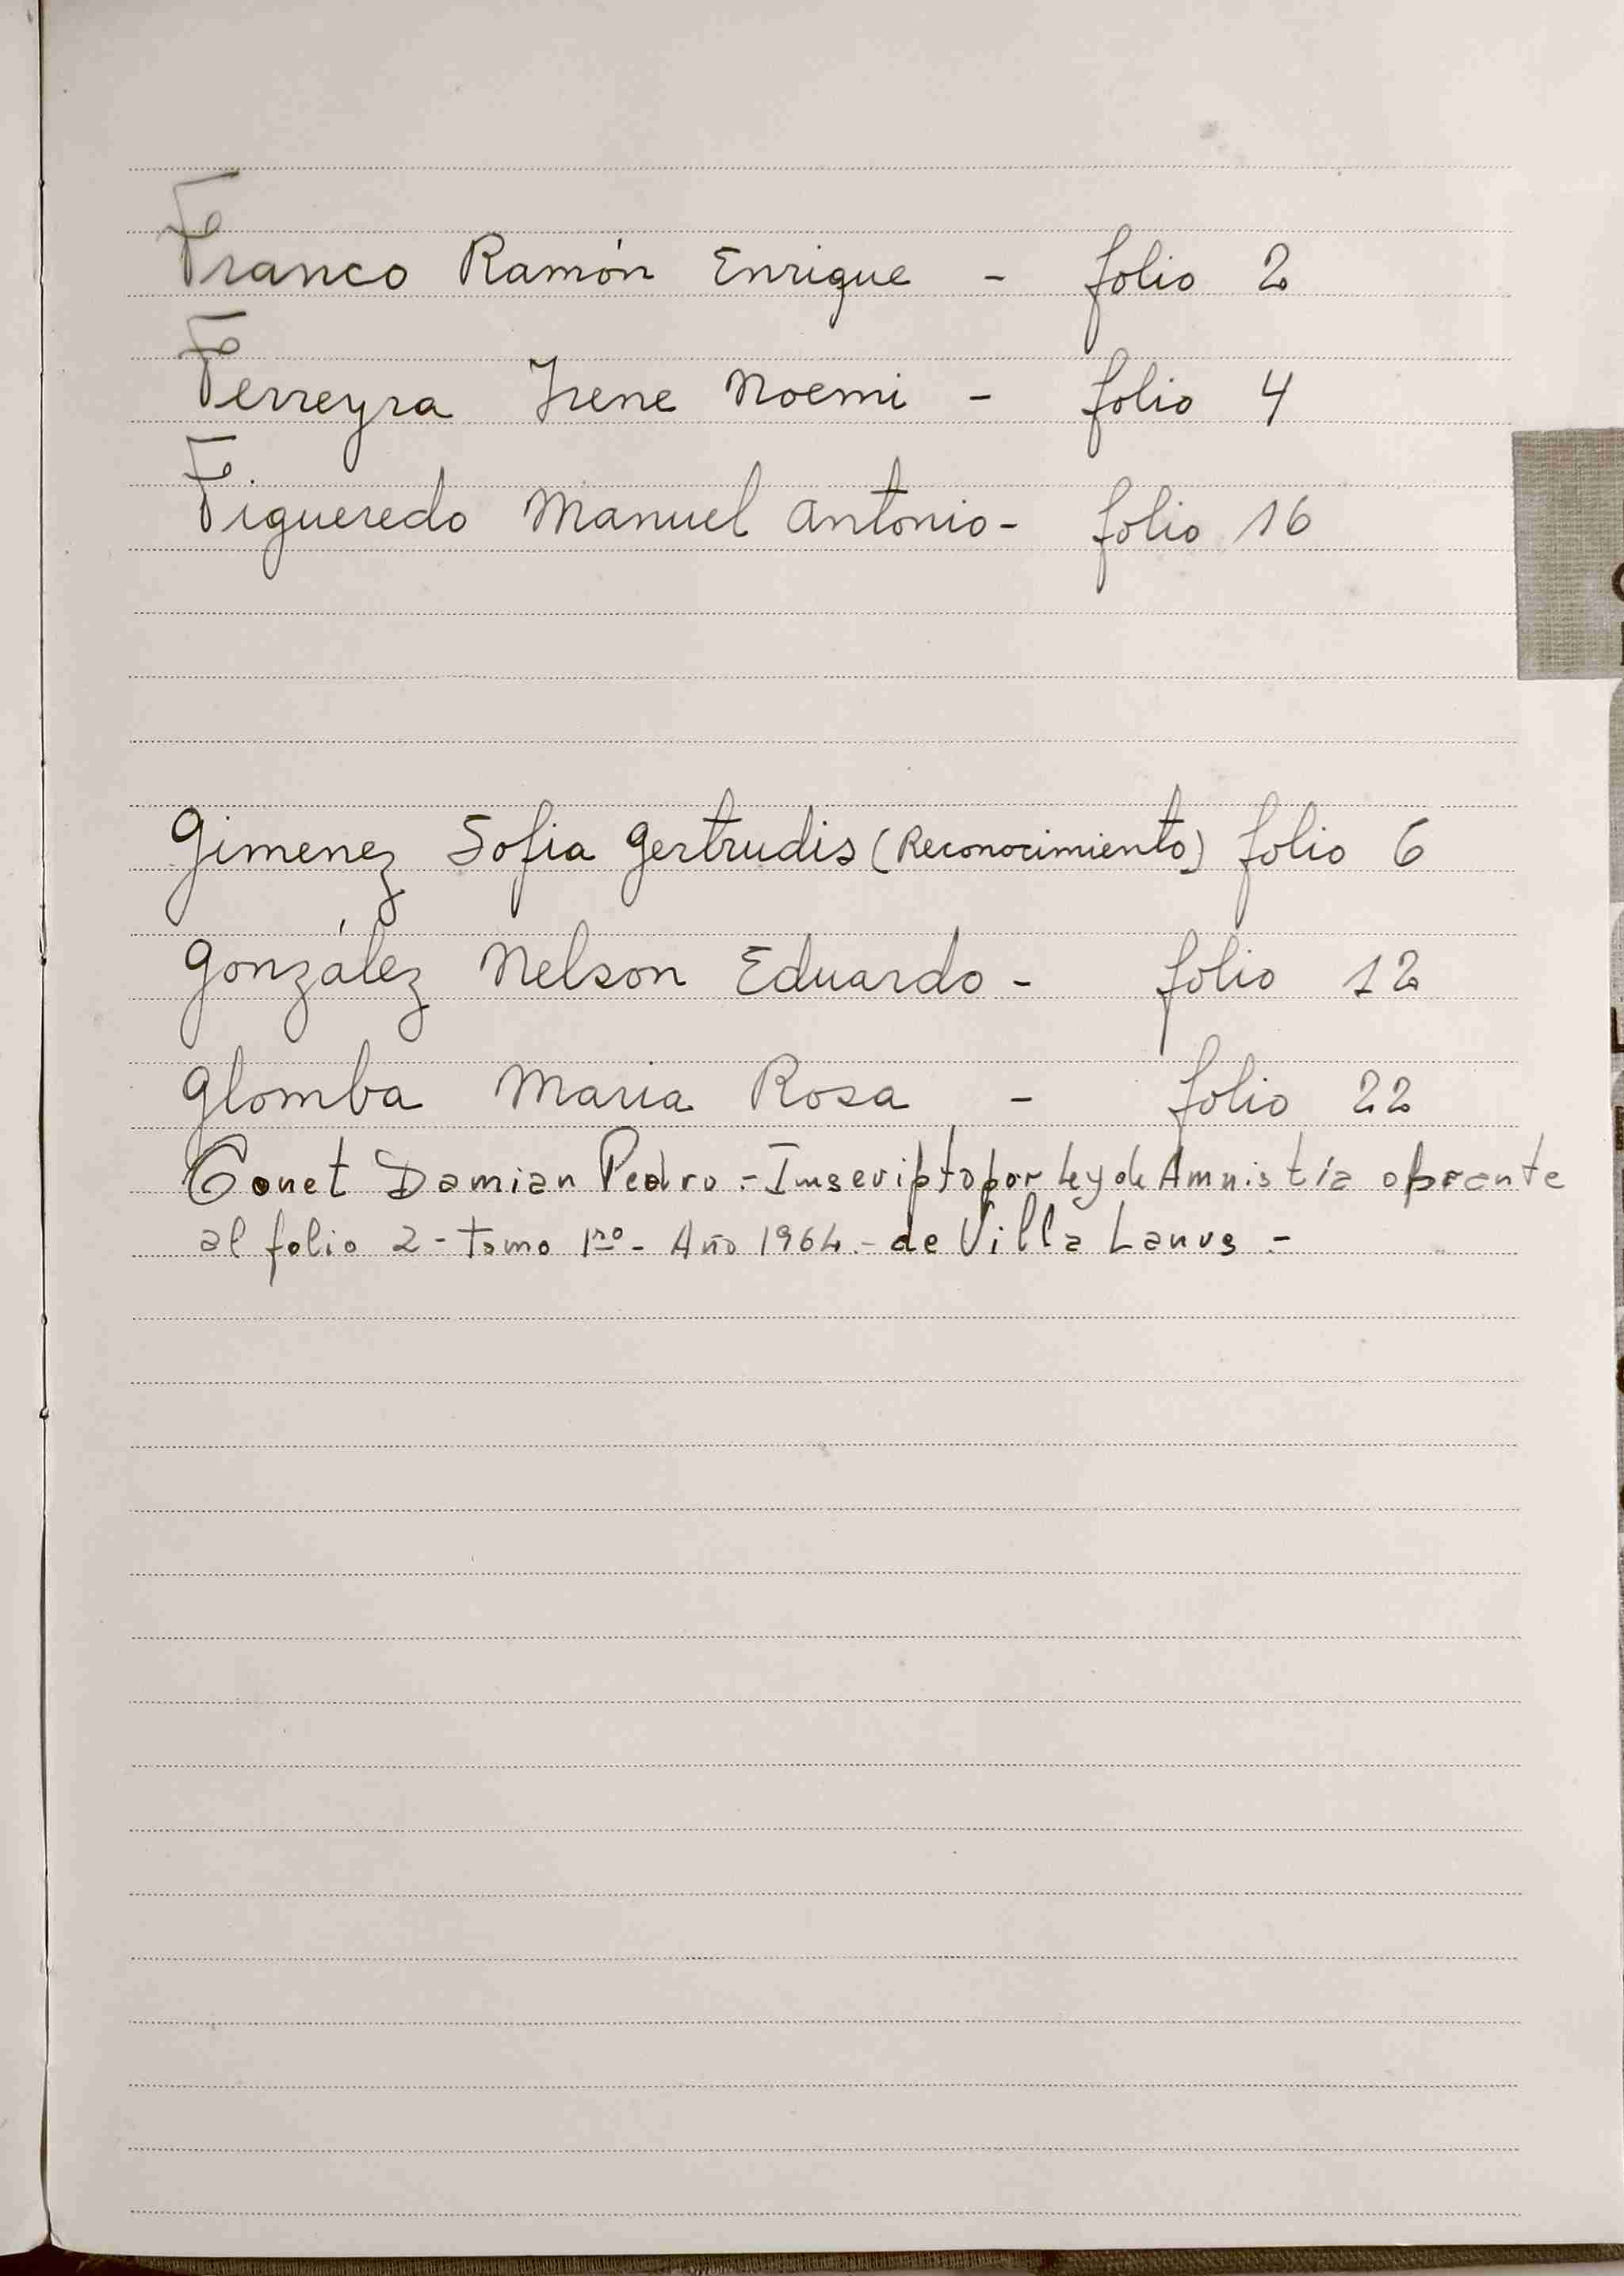 Franco Ramón Enrique - folio 2
Ferreyra Irene Noemi - folio 4
Figueredo Manuel Antonio - folio 16
Gimenez Sofia Gertrudis (Reconocimiento) folio 6
González Nelson Eduardo - folio 12
Glomba Maria Rosa - folio 22
Gonet Damian Pedro.- Inscripto por Ley de Amnistía obrante
al folio 2 - tomo 1ro - Año 1964.- de Villa Lanus -